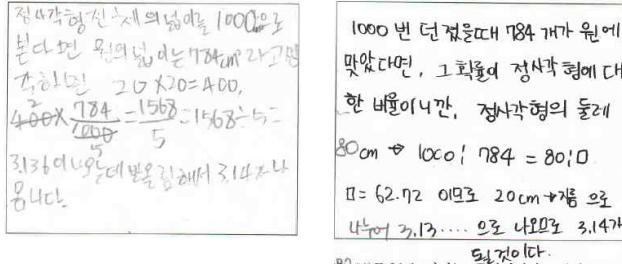 정사각형 전체의 넓이를 1000으로
본다면 원의 넓이는 784cm 라고 생
각하면 20×20=400,
400×784/1000=1568/5=1568÷5=
3.136이 나오는데 반올림해서 3.14가 나
옵니다.
1000번 던졌을때 784개가 원에
맞았다면, 그 확률이 정사각형에 대
한 비율이니깐, 정사각형의 둘레
80cm → 1000:784=80:□
□=62.72 이므로 20cm→지름 으로
나누어 3.13.... 으로 나오므로 3.14가
될것이다.